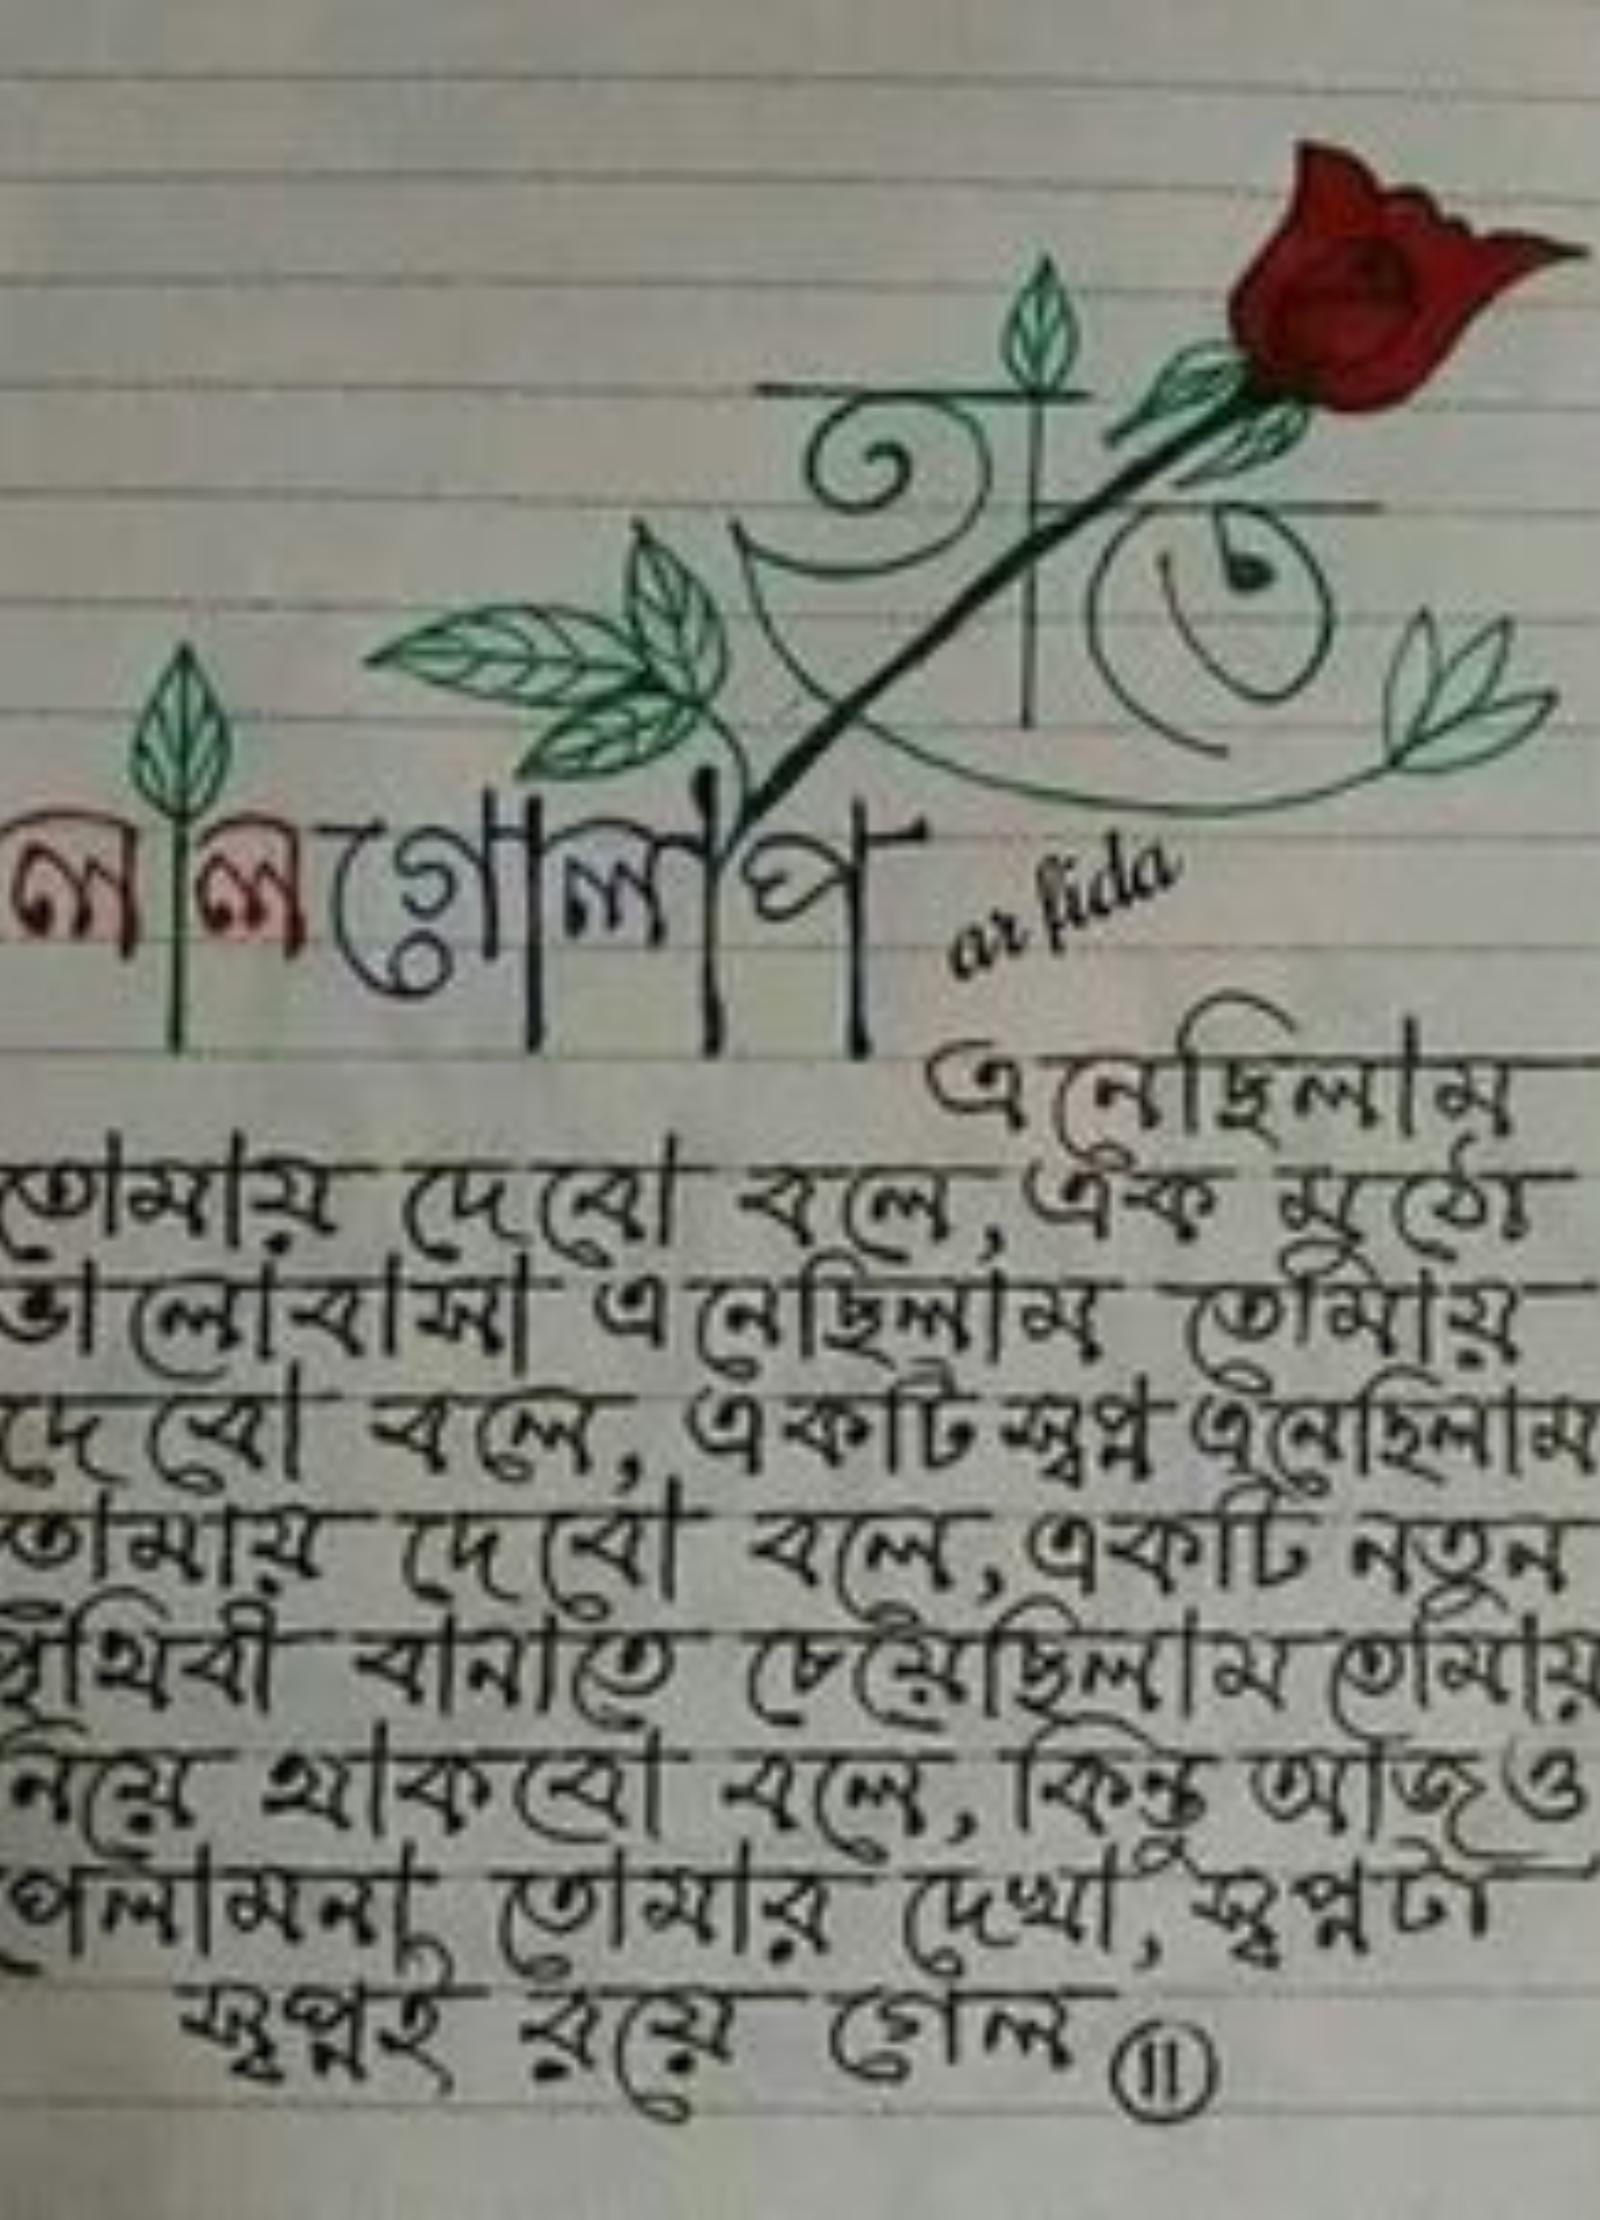 হাতে
লাল গোলাপ
ar fida
এনেছিলাম
তোমায় দেবো বলে, এক মুঠো
ভালোবাসা এনেছিলাম তোমায়
দেবো বলে, একটি স্বপ্ন এনেছিলাম
তোমায় দেবো বলে, একটি নতুন
পৃথিবী বানাতে চেয়েছিলাম তোমায়
নিয়ে থাকবো বলে, কিন্তু আজও
পেলামনা তোমার দেখা, স্বপ্নটা
স্বপ্নই রয়ে গেল ॥